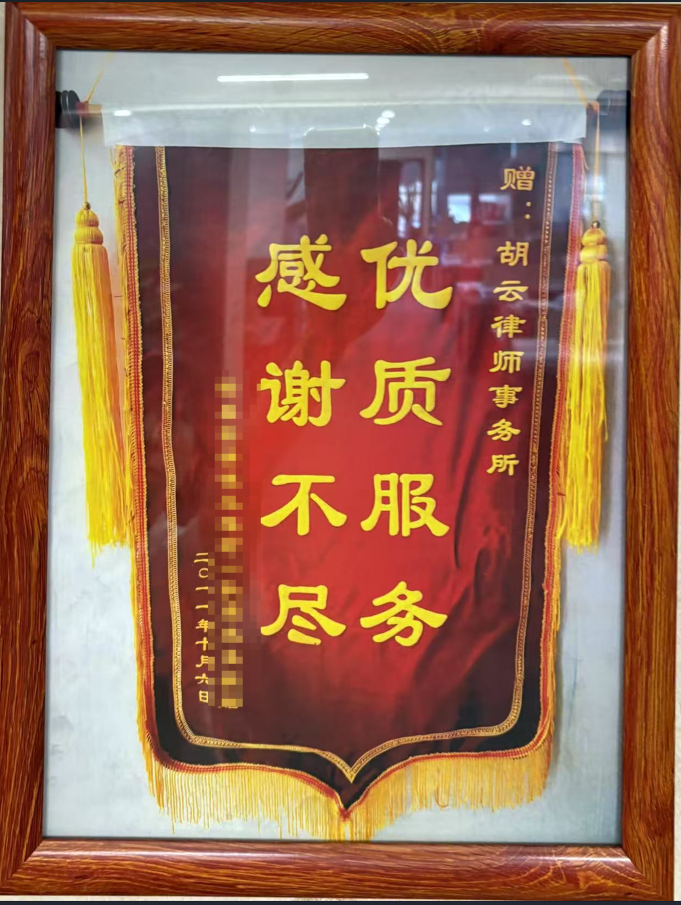 赠：胡云律师事务所
优质服务
感谢不尽
二〇一一年十月六日